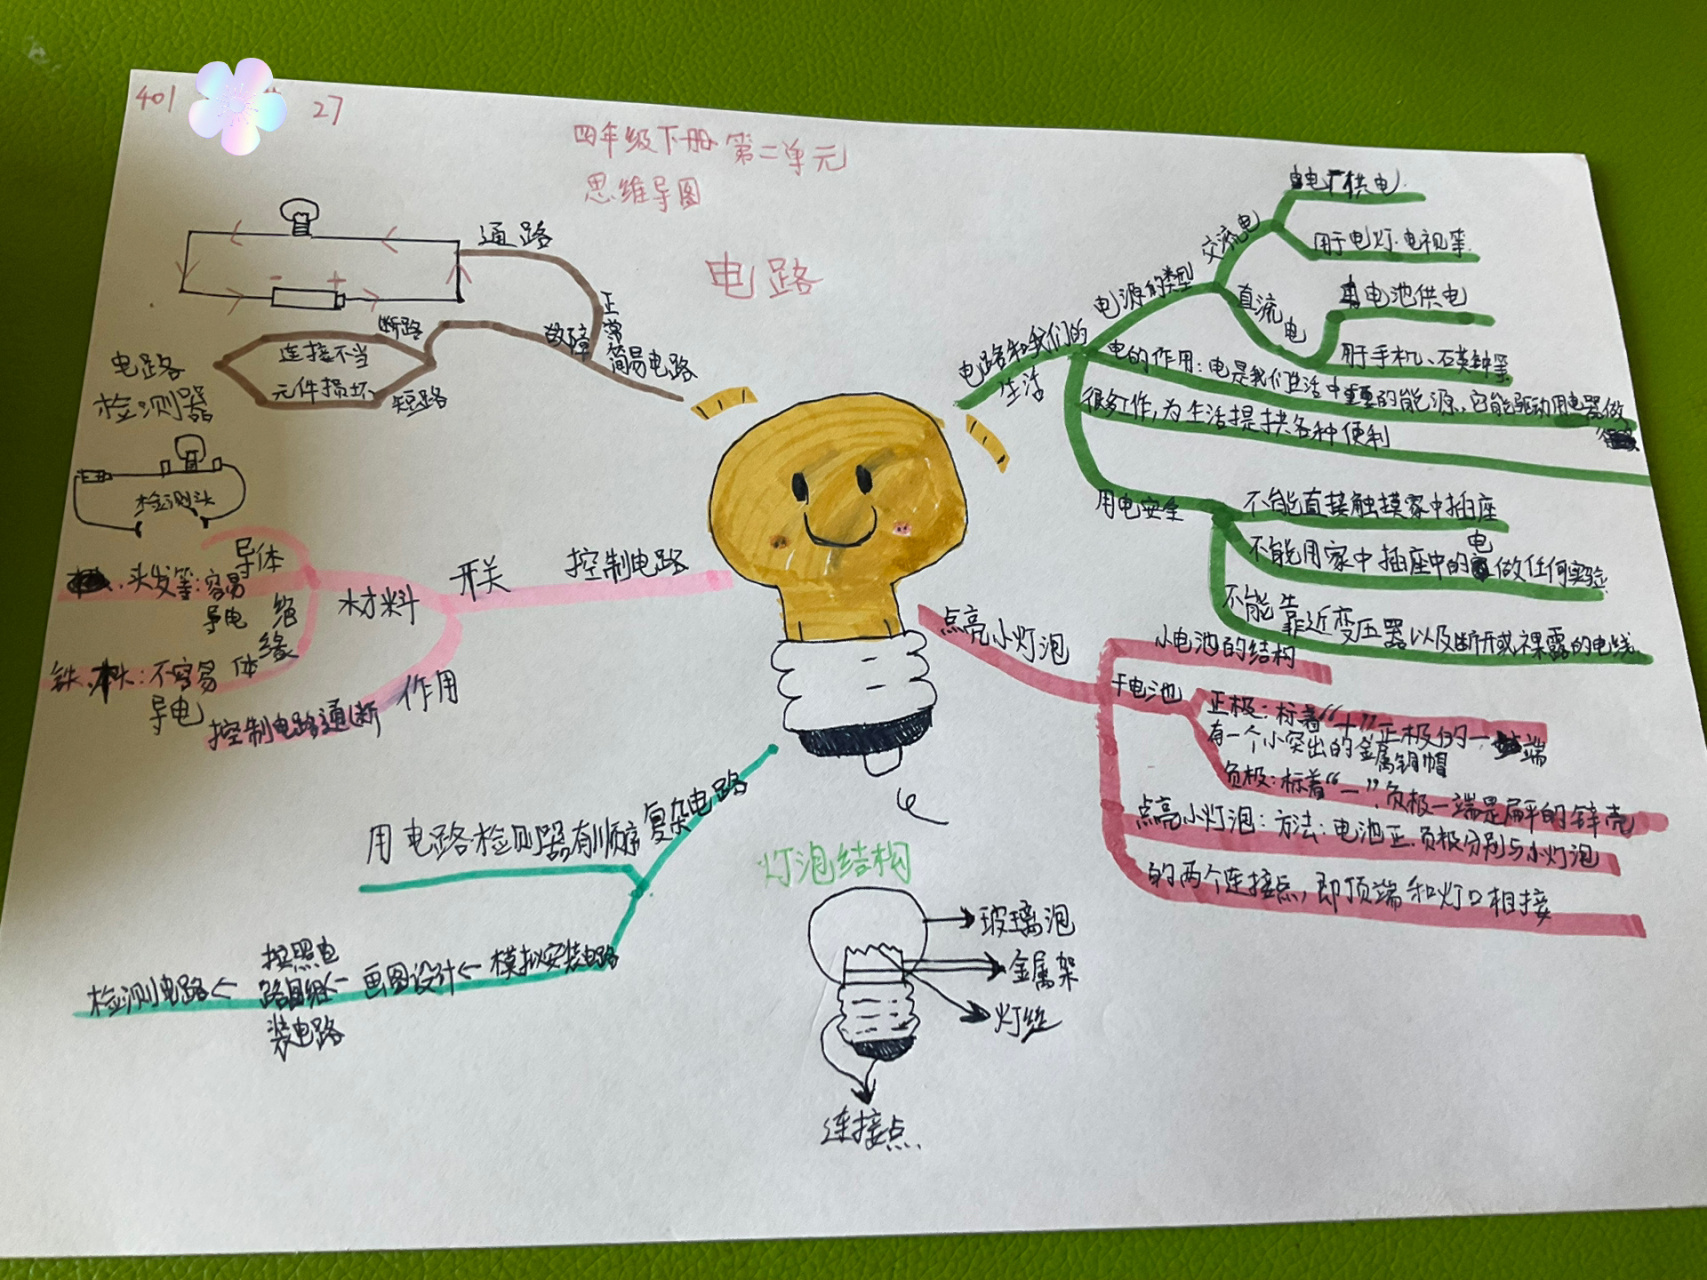 401
27
四年级下册第二单元
思维导图
电路
通路
正常
故障
简易电路
断路
连接不当
元件损坏
短路
电路
检测器
检测头
- +
控制电路
开关
材料
导体
头发等:容易
导电
绝缘
体
不容易
导电
作用
控制电路通断
复杂电路
用电路检测器有顺序
模拟安装电路
画图设计
按照电
路图组
装电路
检测电路
灯泡结构
玻璃泡
金属架
灯丝
连接点
电路和我们的
生活
电源的类型
交流电
电厂供电
用于电灯.电视等
直流电
电池供电
用于手机、石英钟等
电的作用:电是我们生活中重要的能源,它能驱动用电器做
很多工作,为生活提供各种便利
用电安全
不能直接触摸家中插座
不能用家中插座中的电做任何实验
不能靠近变压器以及断开或裸露的电线
点亮小灯泡
小电池的结构
干电池
正极:标着“+”正极的一端
有一个小突出的金属铜帽
负极:标着“一”,负极一端是扁平的锌壳
点亮小灯泡:方法:电池正.负极分别与小灯泡
的两个连接点,即顶端和灯口相接